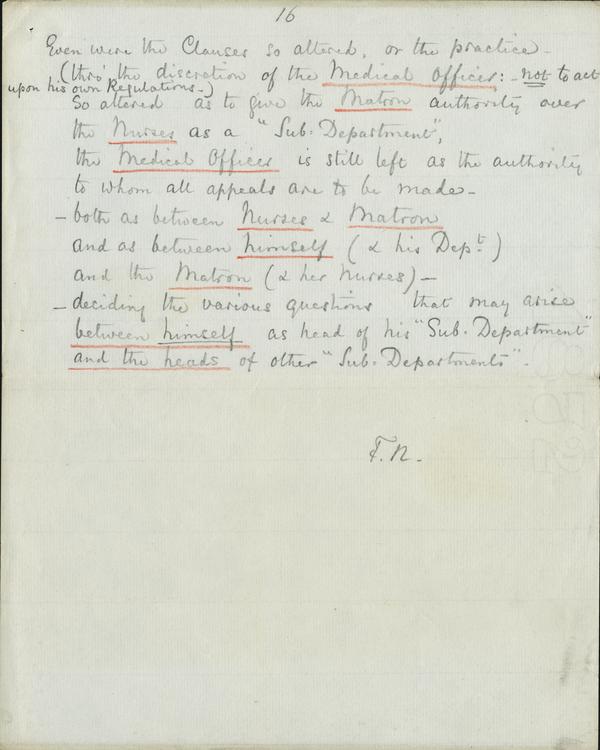 16
Even were the Clauses so altered, or the practice -
(thro' the discretion of the Medical Officer: - not to act
upon his own Regulations -)
So altered as to give the Matron authority over
the Nurses as a "Sub-Department",
the Medical Officer is still left as the authority
to whom all appeals are to be made -
- both as between Nurses & Matron
and as between himself (& his Dept)
and the Matron (& her Nurses) -
- deciding the various questions that may arise
between himself as head of his "Sub-Department"
and the heads of other "Sub-Departments".
F.N.